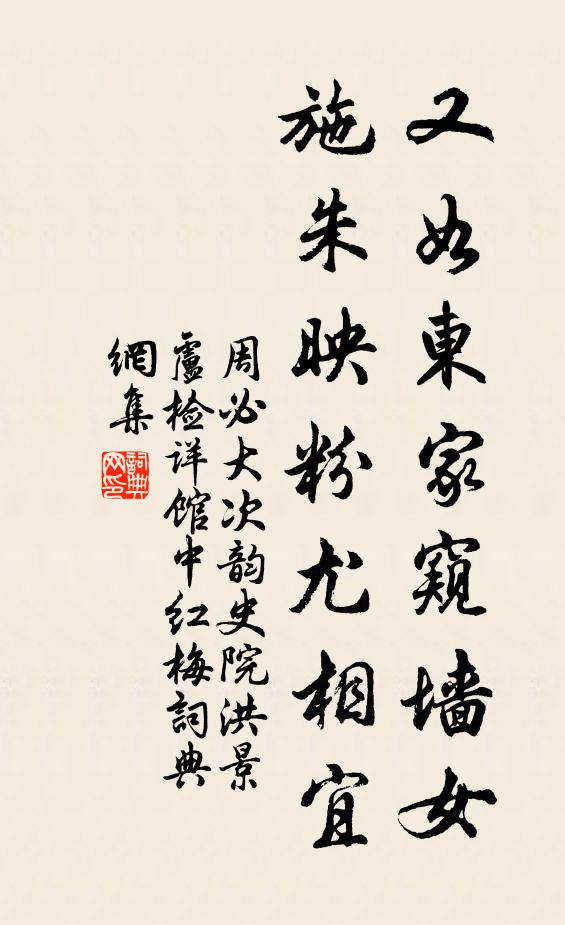 又如東家窺墙女
施朱映粉尤相宜
周必大次韵史院洪景
盧检详馆中红梅詞典
網集
詞典網印